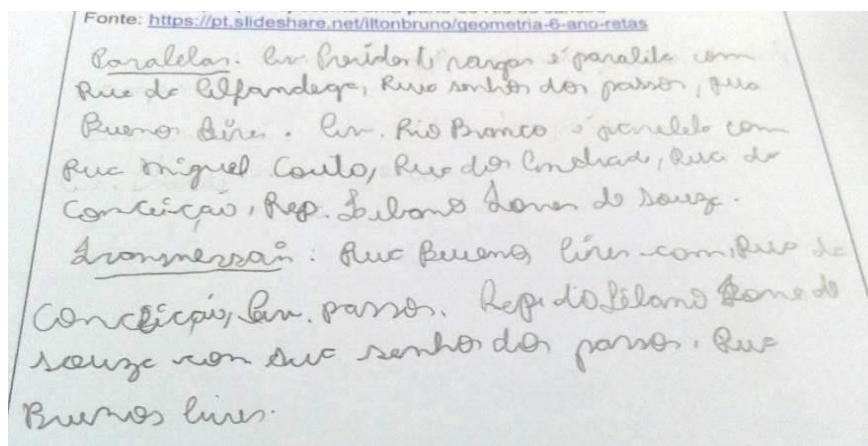 Fonte: https://pt.slideshare.net/iltonbruno/geometria-6-ano-retas
Paralelas. Av Presidente vargas é paralela com
Rua da Alfandega, Rua senhor dos passos, rua
Buenos Aires. Av. Rio Branco é paralela com
Rua miguel Couto, Rua dos Andradas, Rua da
Conceição, Rep. Líbano Lones de Souza.
Transversais: Rua Buenos Aires com Rua da
Conceição, Av. passos. Rep. do Líbano Lone de
souza com rua senhor dos passos. Rua
Buenos Aires.